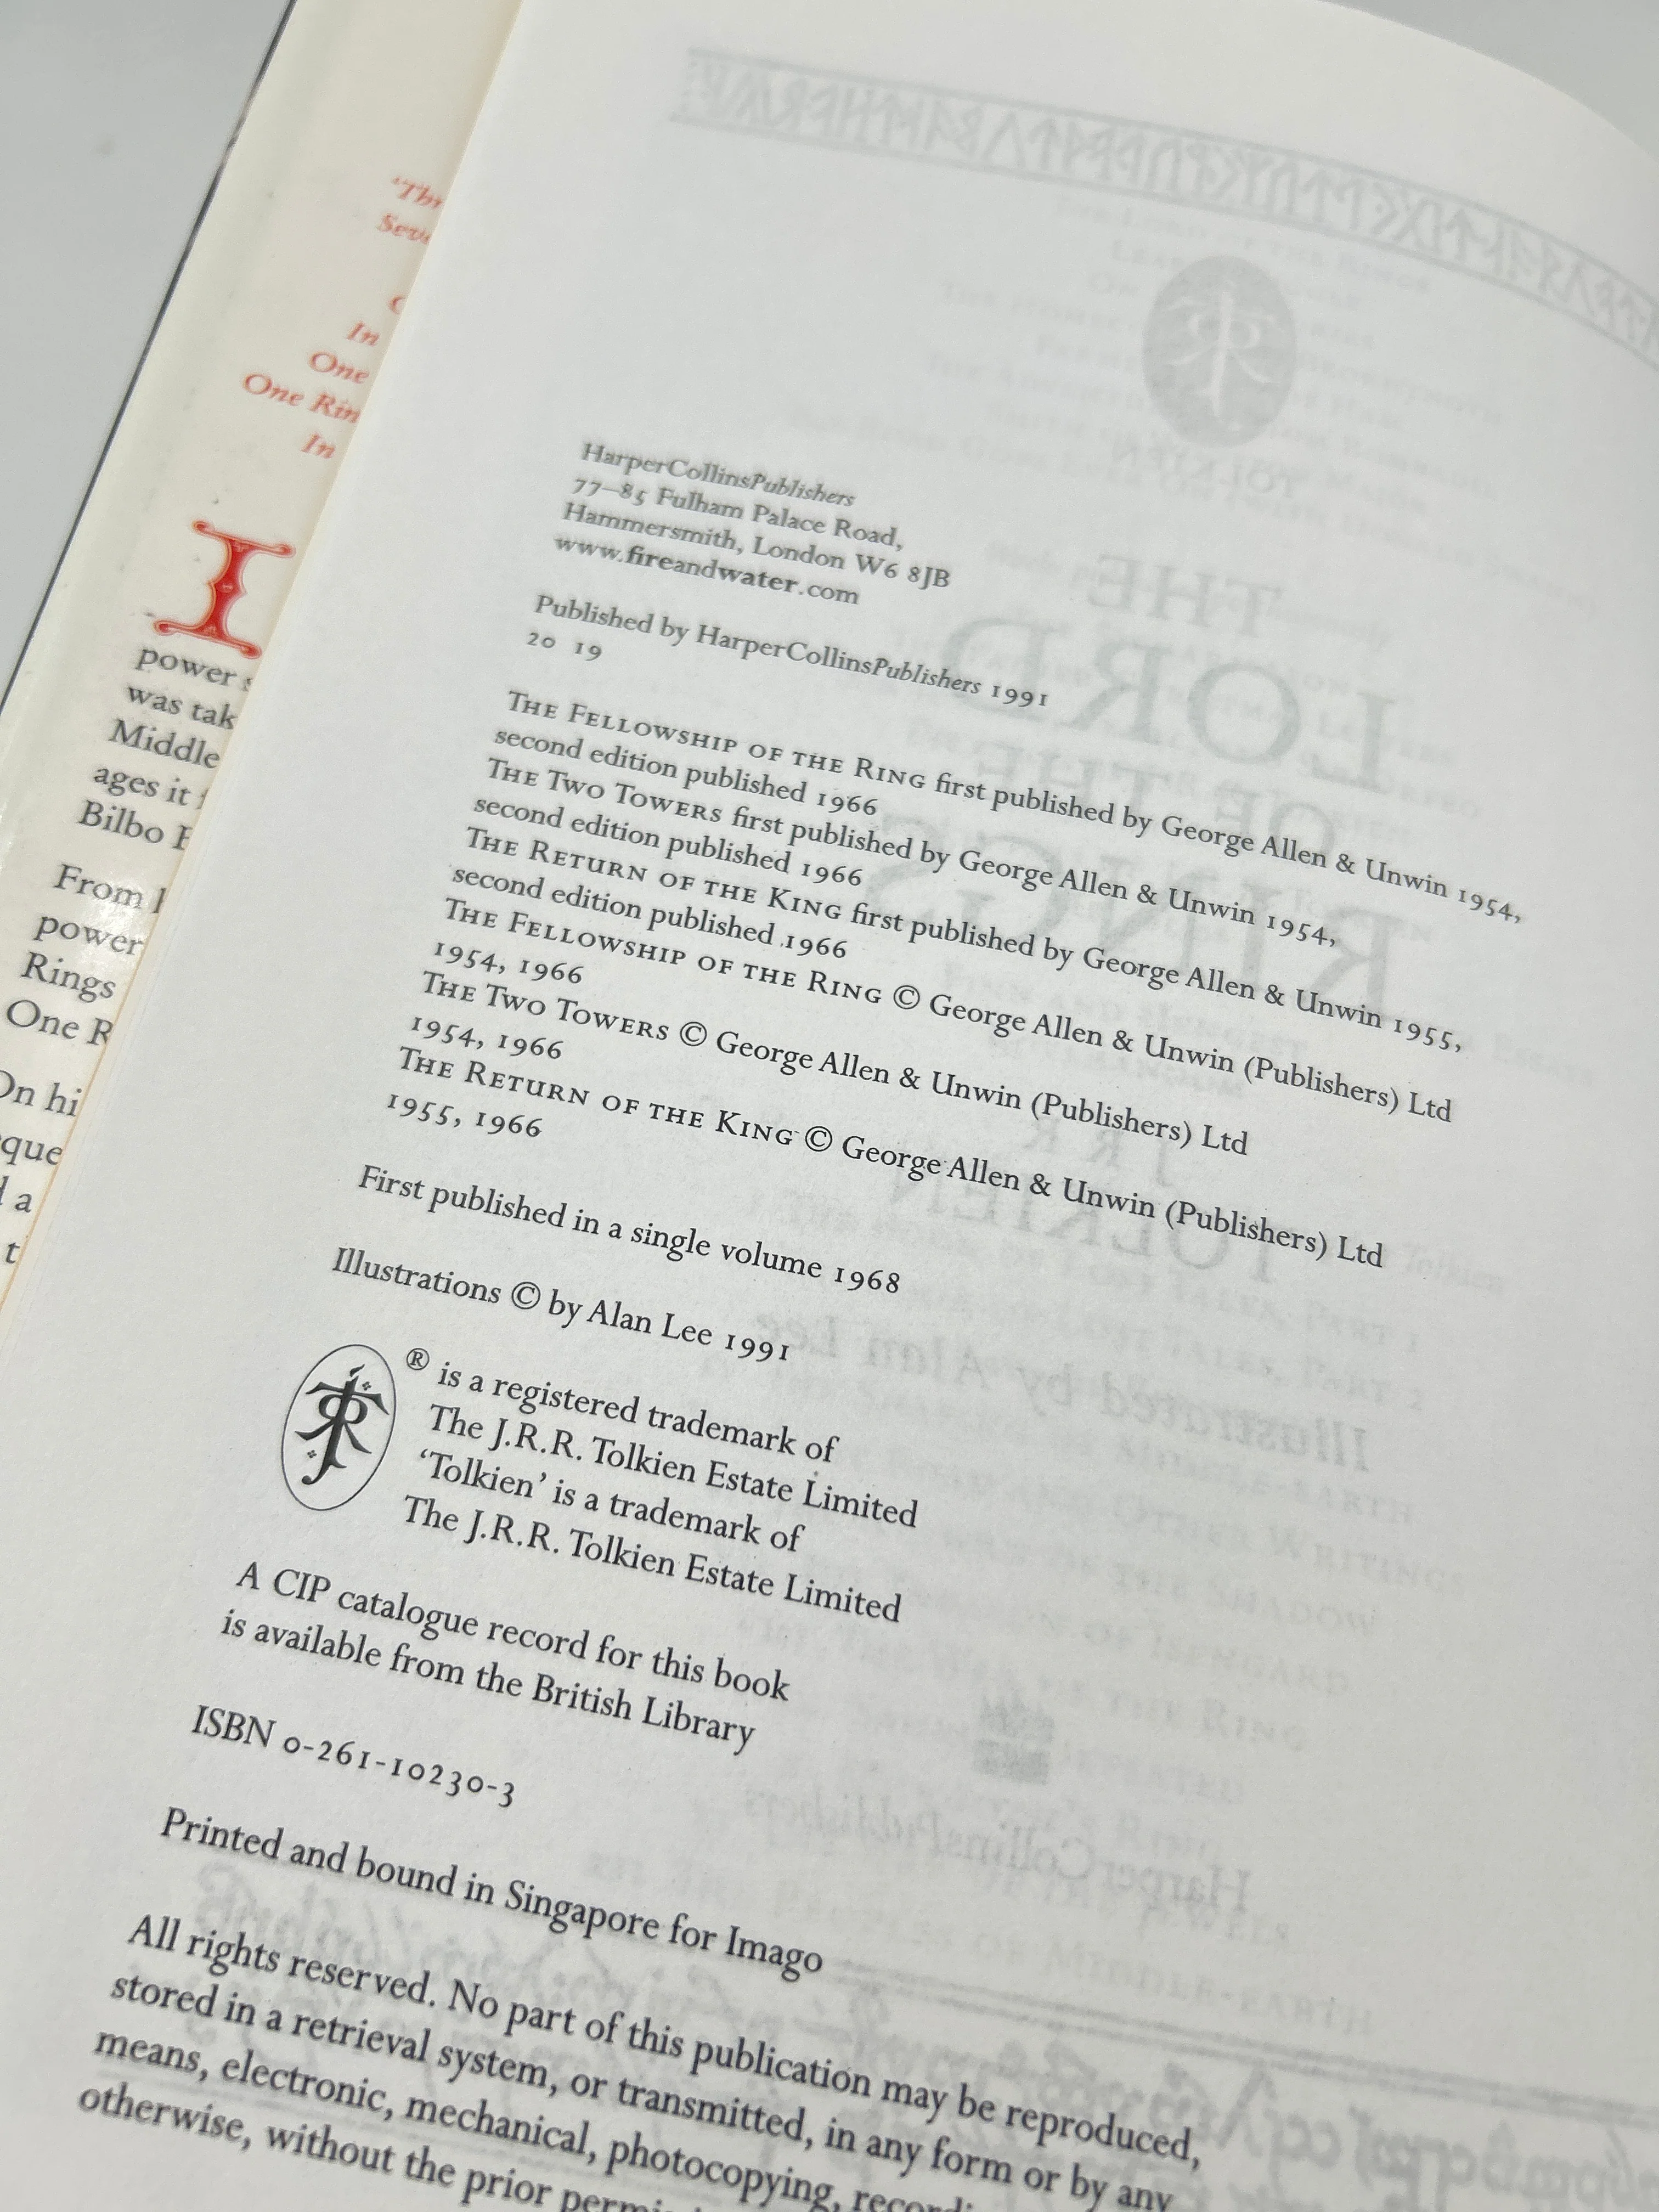 'Thr
Seve
In
One
One Rin
In
I
power s
was tak
Middle
ages it f
Bilbo B
From h
power
Rings
One R
On hi
que
d a
t
HarperCollinsPublishers
77–85 Fulham Palace Road,
Hammersmith, London W6 8JB
www.fireandwater.com
Published by HarperCollinsPublishers 1991
20 19
THE FELLOWSHIP OF THE RING first published by George Allen & Unwin 1954,
second edition published 1966
THE TWO TOWERS first published by George Allen & Unwin 1954,
second edition published 1966
THE RETURN OF THE KING first published by George Allen & Unwin 1955,
second edition published 1966
THE FELLOWSHIP OF THE RING © George Allen & Unwin (Publishers) Ltd
1954, 1966
THE TWO TOWERS © George Allen & Unwin (Publishers) Ltd
1954, 1966
THE RETURN OF THE KING © George Allen & Unwin (Publishers) Ltd
1955, 1966
First published in a single volume 1968
Illustrations © by Alan Lee 1991
® is a registered trademark of
The J.R.R. Tolkien Estate Limited
'Tolkien' is a trademark of
The J.R.R. Tolkien Estate Limited
A CIP catalogue record for this book
is available from the British Library
ISBN 0-261-10230-3
Printed and bound in Singapore for Imago
All rights reserved. No part of this publication may be reproduced,
stored in a retrieval system, or transmitted, in any form or by any
means, electronic, mechanical, photocopying, recordi
otherwise, without the prior permis